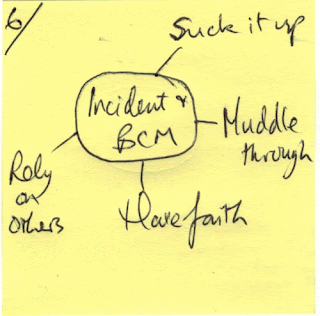 6/
Suck it up
Incident &
BCM
Muddle
through
Rely
on
others
Have faith